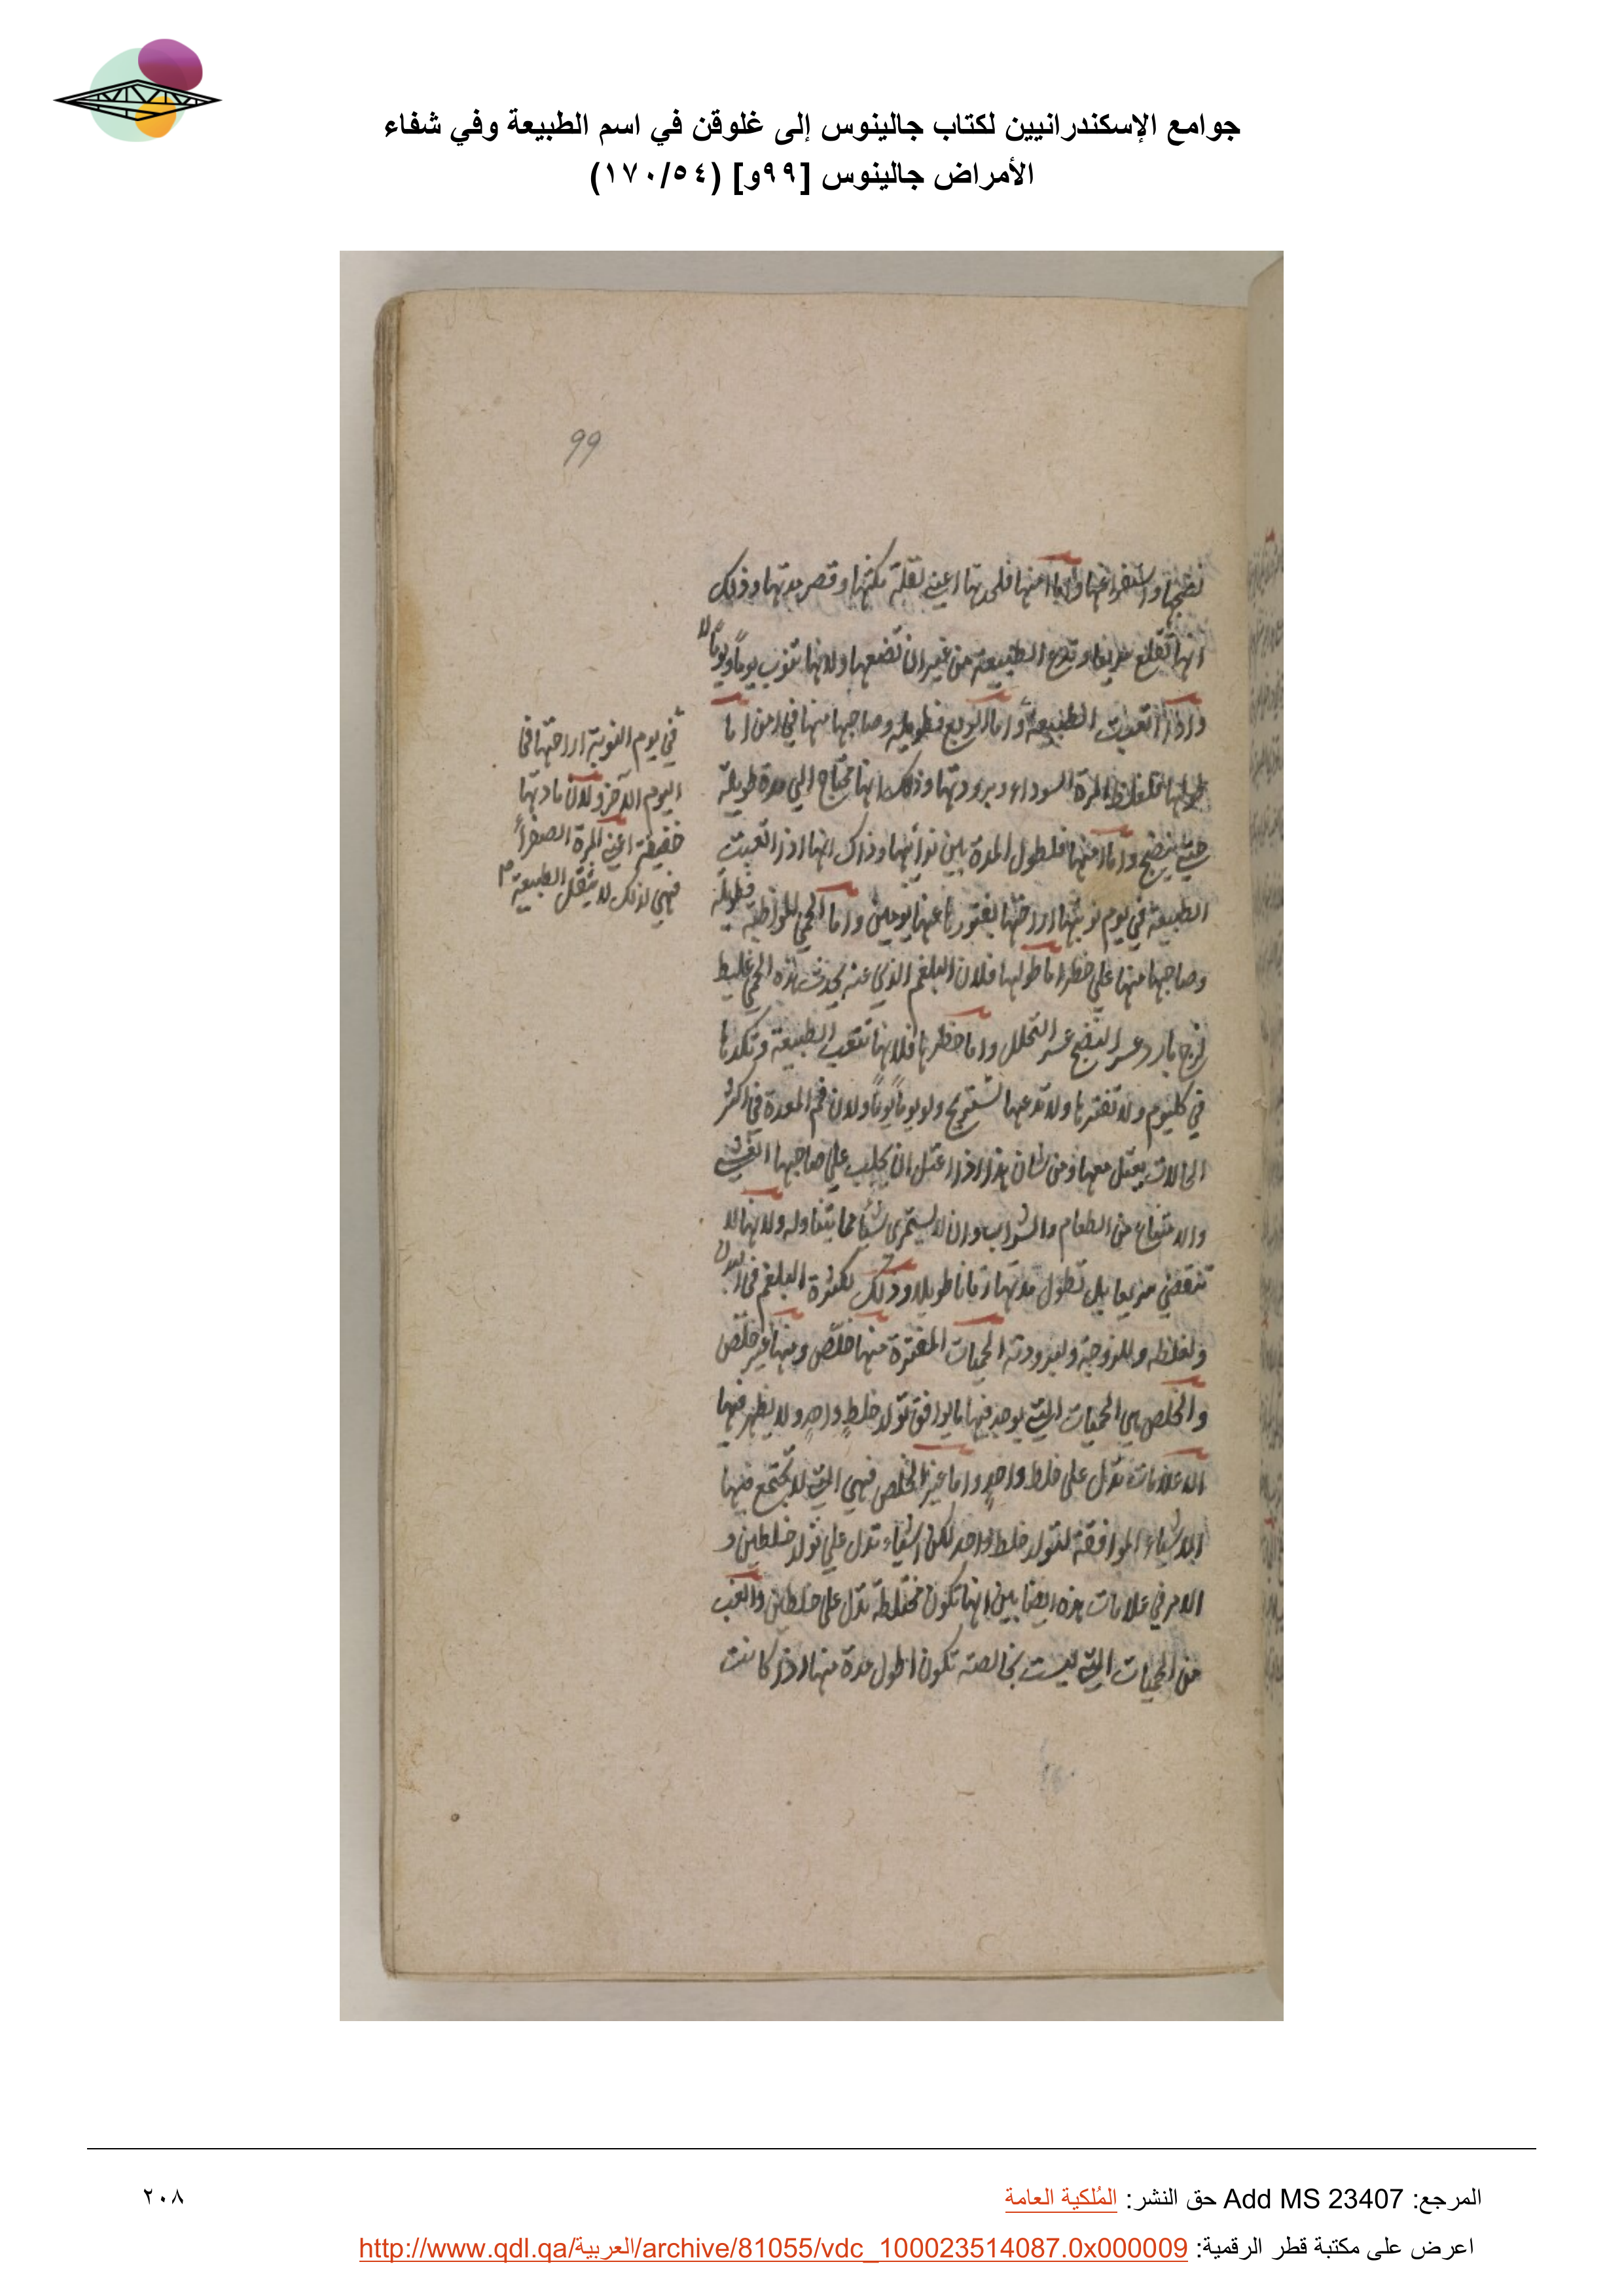 جوامع الإسكندرانيين لكتاب جالينوس إلى غلوقن في اسم الطبيعة وفي شفاء
الأمراض جالينوس [٩٩و] (١٧٠/٥٤)
99
نضجها واستفراغها واما امنها فلحدتها اعني لقلة مكثها وقصر مدتها وذلك
انها تقلع سريعا وتدع الطبيعة من غير ان تضعفها ولانها تنوب يوماً ويوماً لا
واذا اتعبت الطبيعة واما الربع فطويلة وصاحبها منها في امن اما
طولها فلغلظ المرة السوداء وبرودتها وذلك انها تحتاج الي مدة طويلة
حتي ينضج واما امنها فلطول المدة بين نوائبها وذاك انها اذا اتعبت
الطبيعة في يوم نوبتها اراحتها بفتورها عنها يومين واما الحمي المواظبة فطويلة
وصاحبها منها علي خطر اما طولها فلان البلغم الذي عنه يحدث هذه الحمي غليظ
لزج بارد عسر النضج عسر التحلل واما خطرها فلانها تتعب الطبيعة وتكدها
في كل يوم ولا تفترها ولا تدعها تستريح ولو يوماً يوماً ولان فم المعدة في اكثر
الحالات يعتل معها ومن شان هذا اذا اعتل ان يجلب علي صاحبها الغشي
والامتناع من الطعام والشراب وان لا يستمرئ شيا مما يتناوله ولانها لا
تنقضي سريعا بل تطول مدتها زمانا طويلا وذلك لكثرة البلغم في البدن
ولغلظه وللزوجته ولبرودته الحميات المفترة منها خلّص ومنها غير خلّص
والخلص هي الحميات التي يوجد فيها ما يوافق تولد خلطٍ واحدٍ ولا يظهر فيها
الا علامات تدل علي خلط واحدٍ واما غير الخلص فهي التي لا تجتمع فيها
الاشياء الموافقة لتولد خلط واحد لكن اشياء تدل علي تولد خلطين و
الامر في علامات هذه ايضا بين انها تكون مختلطة تدل علي خلطين والغب
من الحميات التي ليست بخالصة تكون اطول مدة منها اذا كانت
في يوم النوبة اراحتها في
اليوم الآخر ولان مادتها
خفيفة اعني المرة الصفراء
فهي لذلك لا يثقل الطبيعة
المرجع: Add MS 23407 حق النشر: المُلكية العامة
٢٠٨
اعرض على مكتبة قطر الرقمية: http://www.qdl.qa/العربية/archive/81055/vdc_100023514087.0x000009